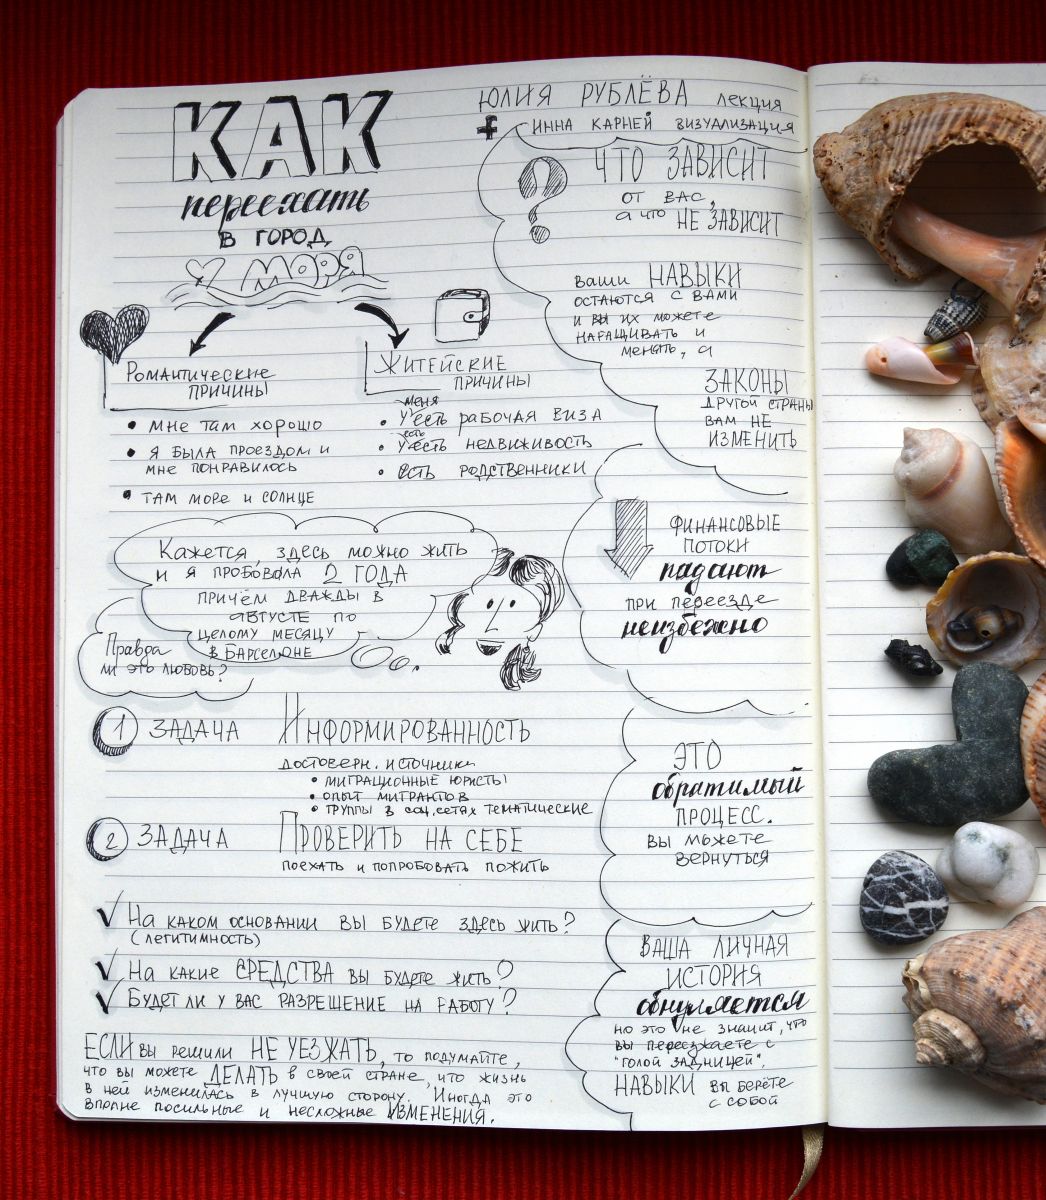 КАК
переехать
в город
у моря
Романтические
причины
• мне там хорошо
• я была проездом и
мне понравилось
• там море и солнце
Житейские
причины
меня
• у есть рабочая виза
есть
• у есть недвиживость
• есть родственники
Кажется, здесь можно жить
и я пробовала 2 года
причём дважды в
августе по
целому месяцу
в Барселоне
Правда
ли это любовь?
1 задача Информированность
достоверн. источники
• миграционные юристы
• опыт мигрантов
• группы в соц.сетях тематические
2 задача Проверить на себе
поехать и попробовать пожить
√ На каком основании вы будете здесь жить?
(легитимность)
√ На какие СРЕДСТВА вы будете жить?
√ Будет ли у вас разрешение на работу?
ЕСЛИ вы решили НЕ УЕЗЖАТЬ, то подумайте,
что вы можете ДЕЛАТЬ в своей стране, что жизнь
в ней изменилась в лучшую сторону. Иногда это
вполне посильные и несложные ИЗМЕНЕНИЯ.
Юлия Рублёва лекция
f Инна Карней визуализация
? ЧТО ЗАВИСИТ
от вас,
а что НЕ ЗАВИСИТ
ваши НАВЫКИ
остаются с вами
и вы их можете
наращивать и
менять, а
ЗАКОНЫ
другой страны
вам не
изменить
финансовые
потоки
падают
при переезде
неизбежно
ЭТО
обратимый
процесс.
вы можете
вернуться
ВАША ЛИЧНАЯ
ИСТОРИЯ
обнуляется
но это не значит, что
вы переезжаете с
"голой задницей".
НАВЫКИ вы берёте
с собой